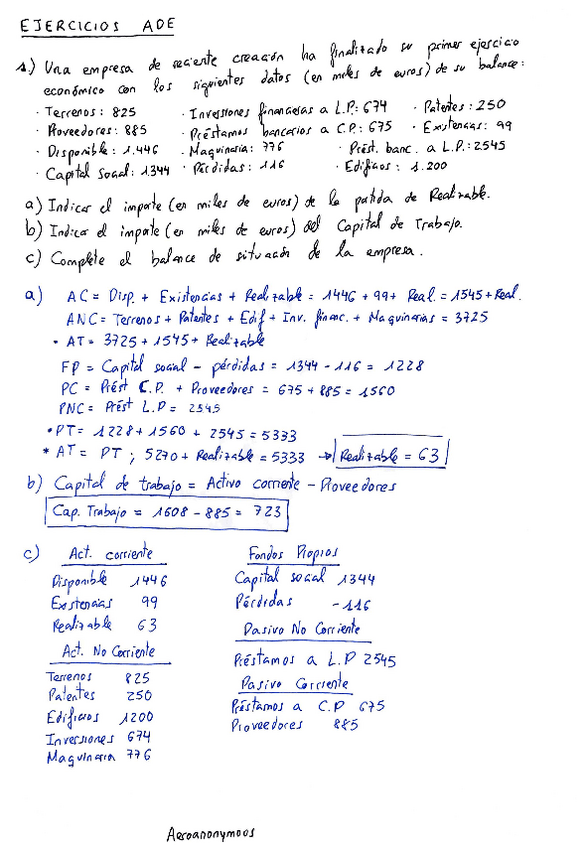 EJERCICIOS ADE
1.) Una empresa de reciente creación ha finalizado su primer ejercicio
económico con los siguientes datos (en miles de euros) de su balance:
· Terrenos: 825 · Inversiones financieras a L.P.: 674 · Patentes: 250
· Proveedores: 885 · Préstamos bancarios a C.P.: 675 · Existencias: 99
· Disponible: 1.446 · Maquinaria: 776 · Prést. banc. a L.P.: 2545
· Capital social: 1344 · Pérdidas: 116 · Edificios: 1.200
a) Indicar el importe (en miles de euros) de la partida de Realizable.
b) Indicar el importe (en miles de euros) del Capital de Trabajo.
c) Complete el balance de situación de la empresa.
a) AC = Disp. + Existencias + Realizable = 1446 + 99 + Real. = 1545 + Real.
ANC = Terrenos + Patentes + Edif + Inv. financ. + Maquinarias = 3725
· AT = 3725 + 1545 + Realizable
FP = Capital social - pérdidas = 1344 - 116 = 1228
PC = Prést C.P. + Proveedores = 675 + 885 = 1560
PNC = Prést L.P = 2545
· PT = 1228 + 1560 + 2545 = 5333
* AT = PT ; 5270 + Realizable = 5333 → Realizable = 63
b) Capital de trabajo = Activo corriente - Proveedores
Cap. Trabajo = 1608 - 885 = 723
c) Act. corriente
Disponible 1446
Existencias 99
Realizable 63
Act. No Corriente
Terrenos 825
Patentes 250
Edificios 1200
Inversiones 674
Maquinaria 776
Fondos Propios
Capital social 1344
Pérdidas -116
Pasivo No Corriente
Préstamos a L.P 2545
Pasivo Corriente
Préstamos a C.P 675
Proveedores 885
Aeroanonymoos